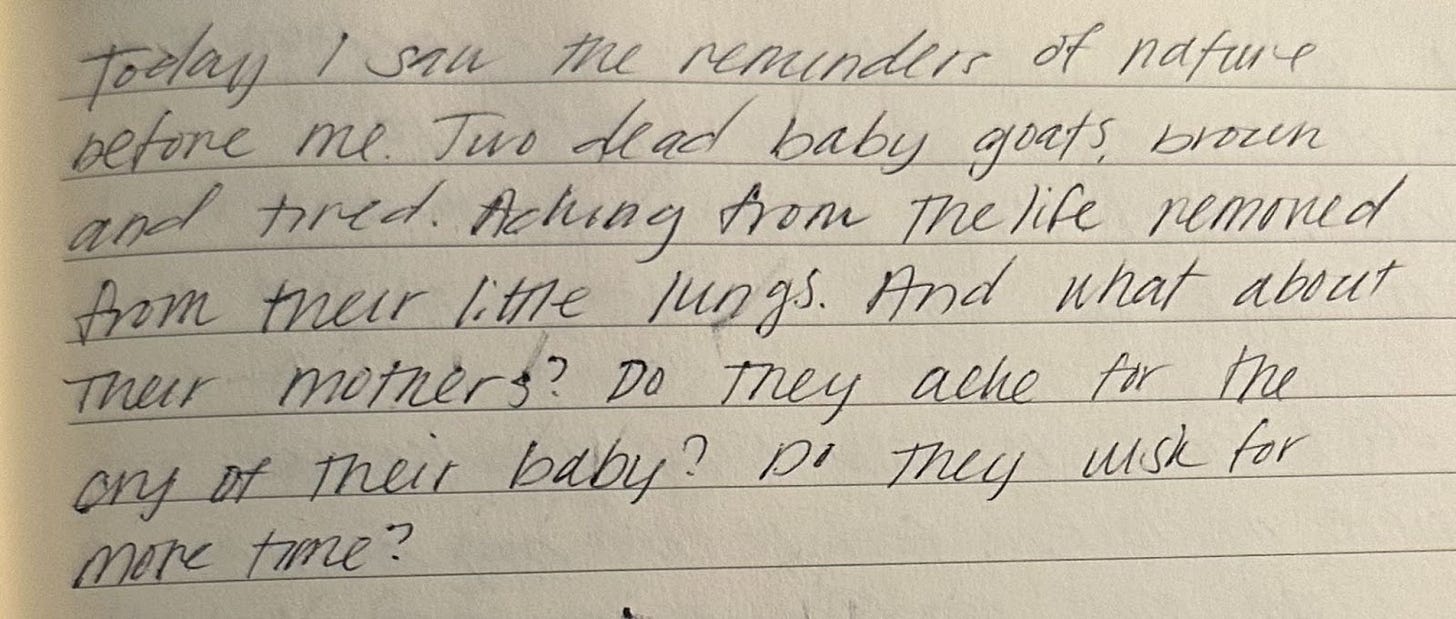 Today I saw the reminders of nature
before me. Two dead baby goats, brown
and tired. Aching from the life removed
from their little lungs. And what about
their mothers? Do they ache for the
cry of their baby? Do they wish for
more time?